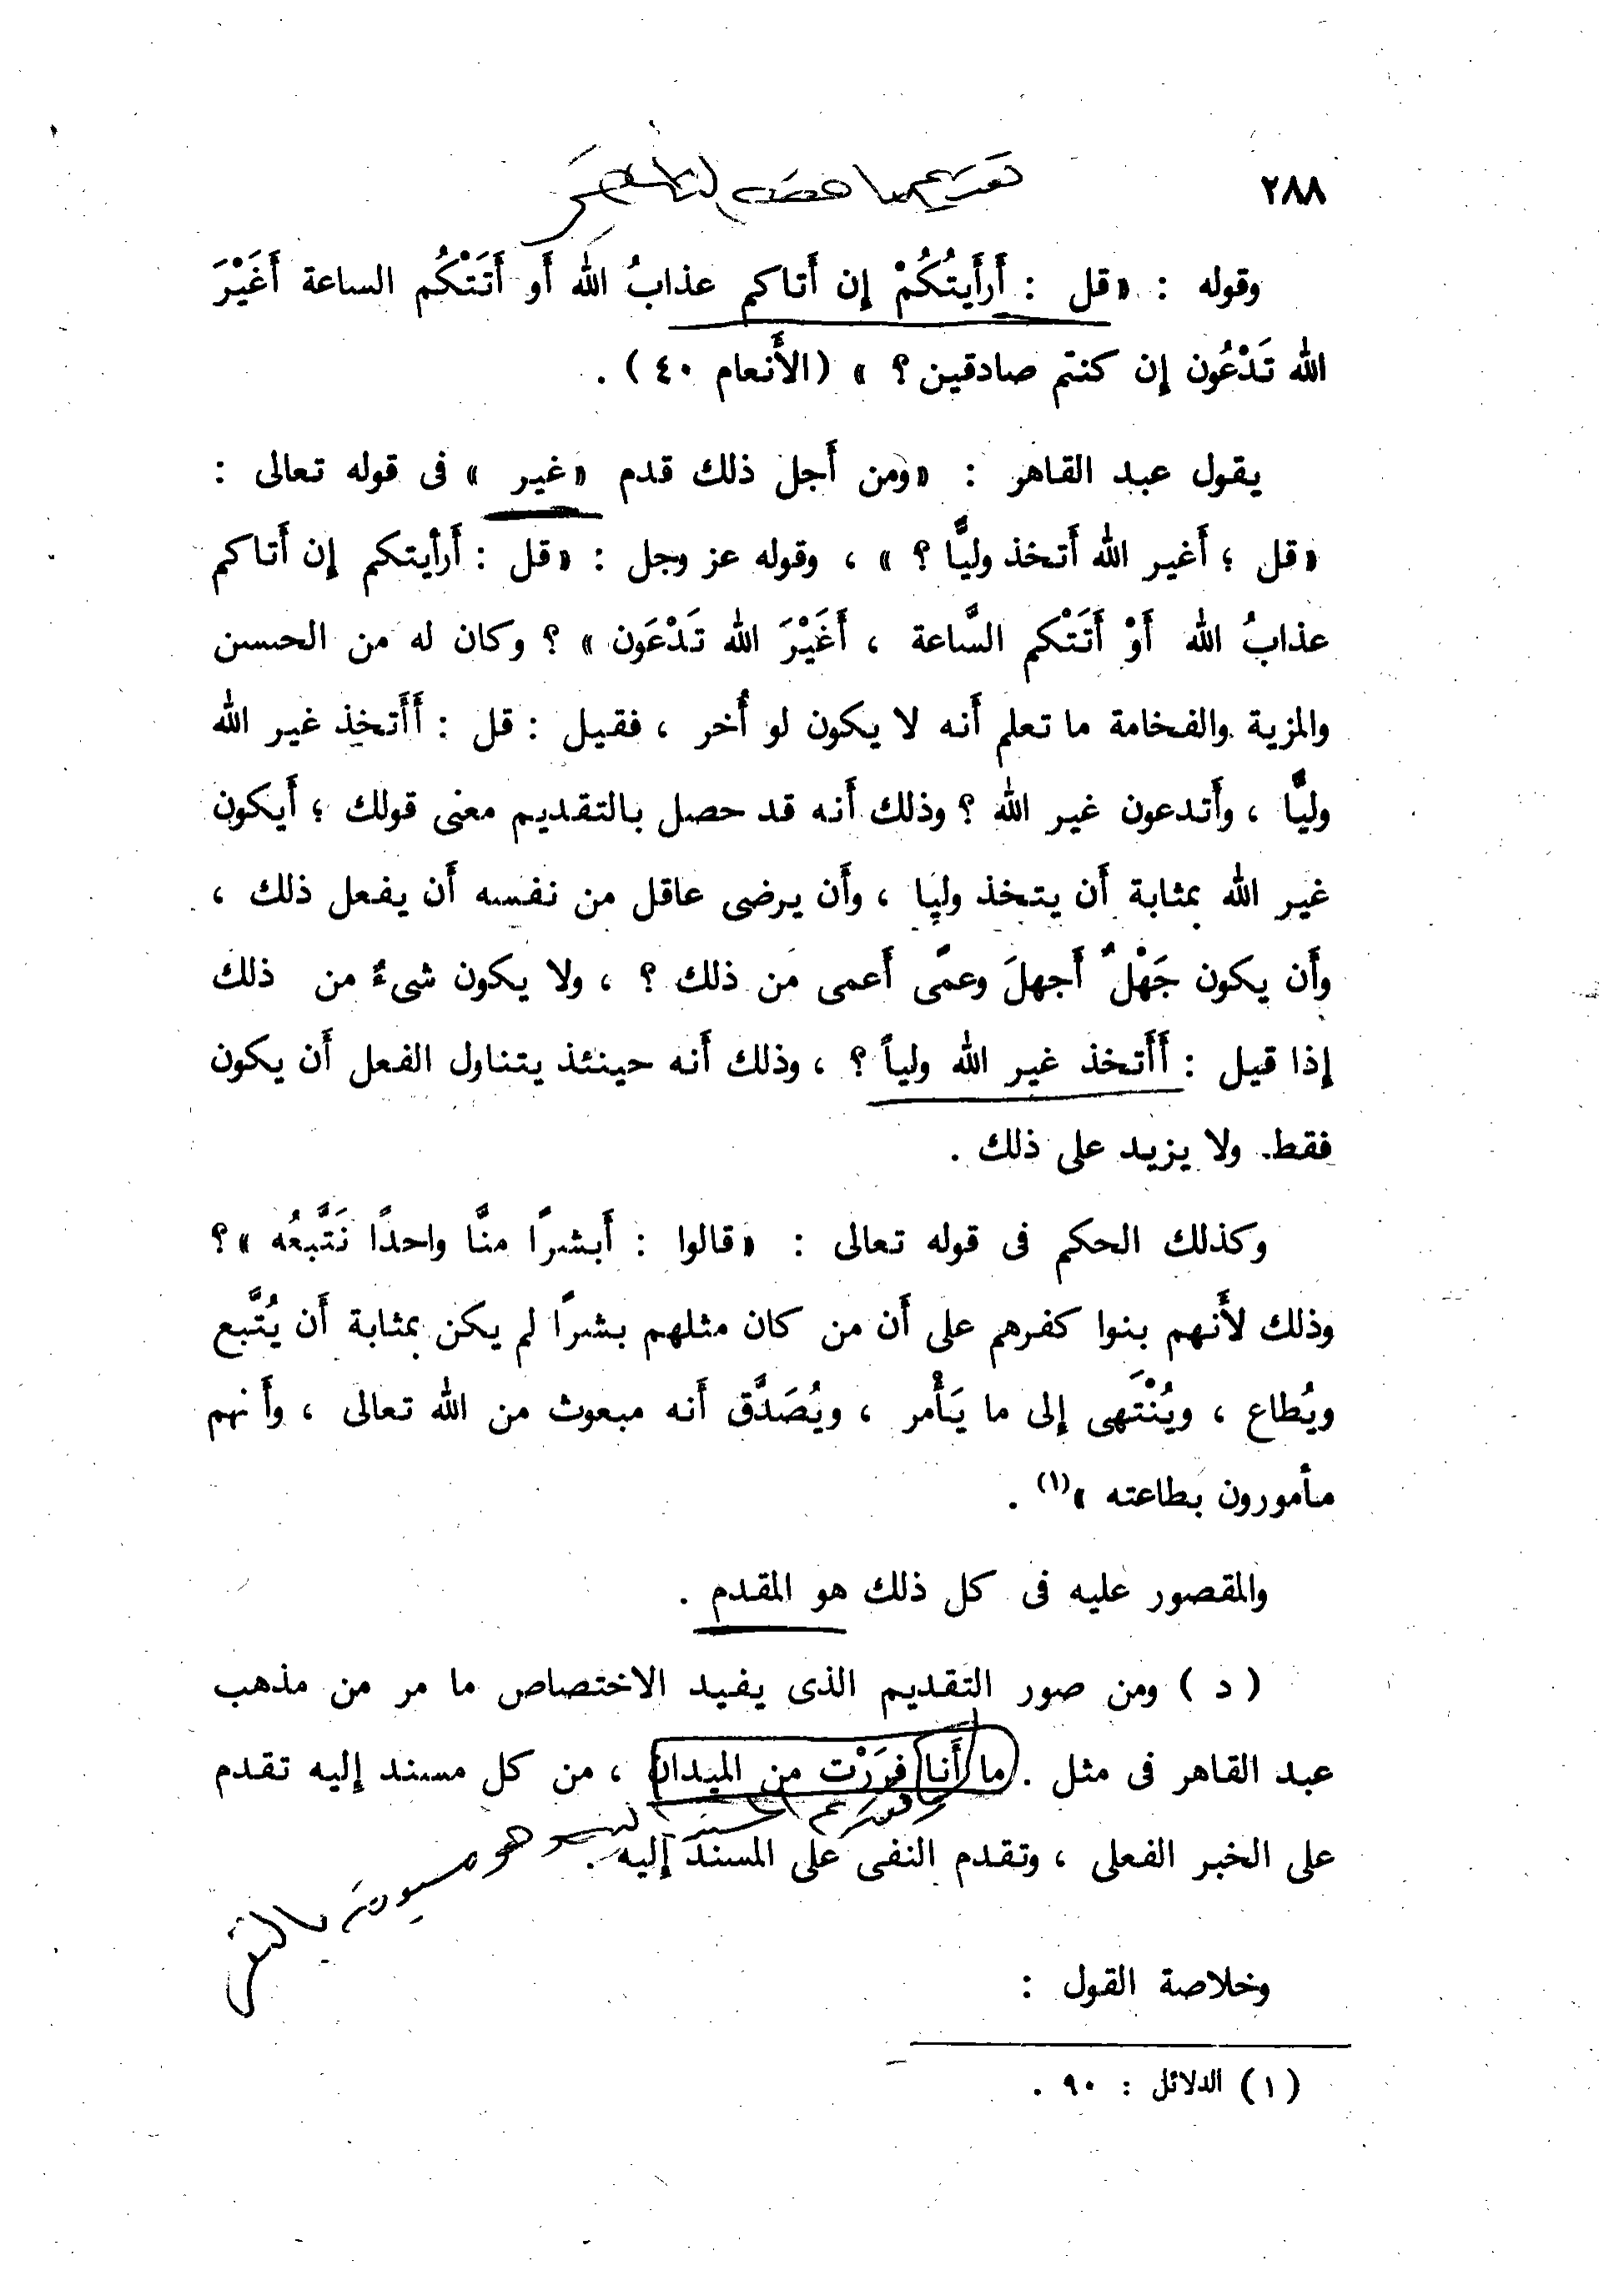 ٢٨٨
وقوله : «قل : أَرأَيتُكُمْ إِن أَتاكم عذابُ الله أَو أَتَتْكُم الساعة أَغَيْرَ
الله تَدْعُون إِن كنتم صادقين ؟ » (الأَنعام ٤٠) .
يقول عبد القاهر : «ومن أَجل ذلك قدم «غير » فى قوله تعالى :
«قل ؛ أَغير الله أَتخذ وليًّا ؟ » ، وقوله عز وجل : «قل : أَرأيتكم إِن أَتاكم
عذابُ الله أَوْ أَتَتْكم السَّاعة ، أَغَيْرَ الله تَدْعَون » ؟ وكان له من الحسن
والمزية والفخامة ما تعلم أَنه لا يكون لو أُخر ، فقيل : قل : أَأَتخذ غير الله
وليًّا ، وأَتدعون غير الله ؟ وذلك أَنه قد حصل بالتقديم معنى قولك ؛ أَيكون
غير الله بمثابة أَن يتخذ وليا ، وأَن يرضى عاقل من نفسه أَن يفعل ذلك ،
وأَن يكون جَهْلٌ أَجهلَ وعمًى أَعمى من ذلك ؟ ، ولا يكون شىءٌ من ذلك
إِذا قيل : أَأَتخذ غير الله ولياً ؟ ، وذلك أَنه حينئذ يتناول الفعل أَن يكون
فقط. ولا يزيد على ذلك .
وكذلك الحكم فى قوله تعالى : «قالوا : أَبشرًا منَّا واحدًا نَتَّبعُه »؟
وذلك لأَنهم بنوا كفرهم على أَن من كان مثلهم بشرًا لم يكن بمثابة أَن يُتَّبع
ويُطاع ، ويُنْتَهى إِلى ما يَأْمر ، ويُصَدَّق أَنه مبعوث من الله تعالى ، وأَنهم
مأمورون بطاعته »(١) .
والمقصور عليه فى كل ذلك هو المقدم .
( د ) ومن صور التقديم الذى يفيد الاختصاص ما مر من مذهب
عبد القاهر فى مثل . ما أَنا فرَرْت من الميدان ، من كل مسند إِليه تقدم
على الخبر الفعلى ، وتقدم النفى على المسند إِليه .
وخلاصة القول :
(١) الدلائل : ٩٠ .